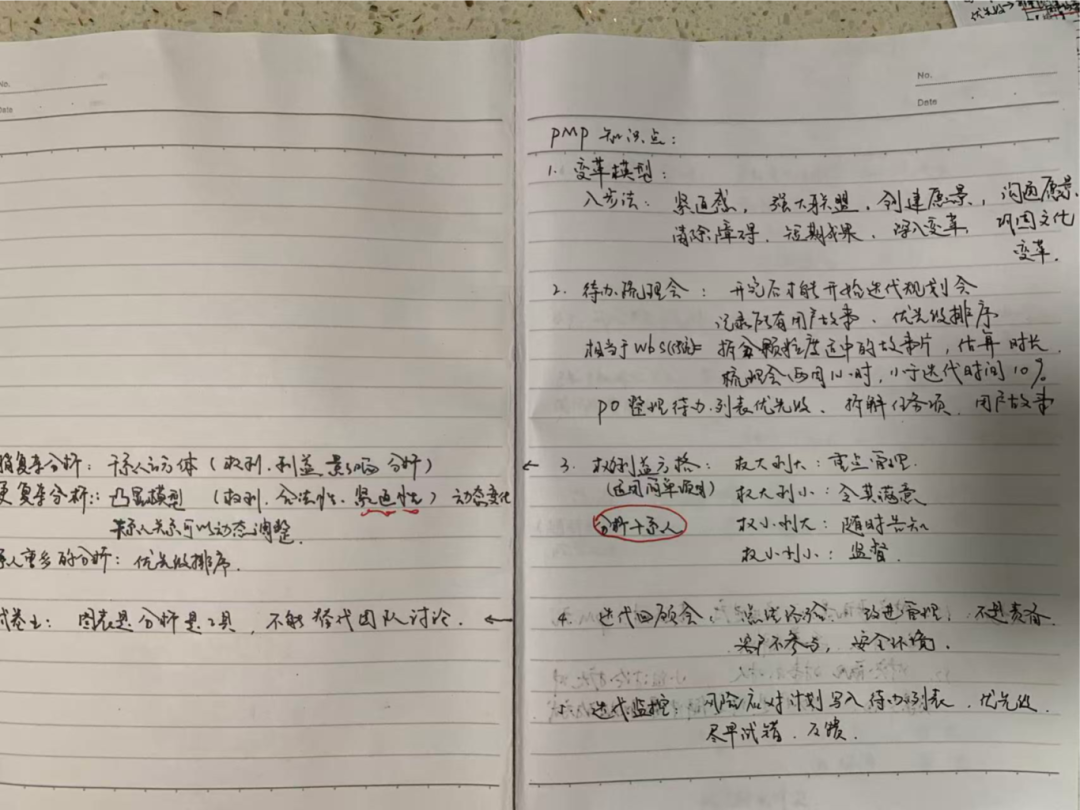 No.
Date
优先级→
No.
Date
PMP 知识点:
1. 变革模型:
八步法: 紧迫感, 强大联盟, 创建愿景, 沟通愿景,
消除障碍, 短期成果, 深入变革, 巩固文化
变革.
2. 待办梳理会: 开完后才能开始迭代规划会
记录所有用户故事、优先级排序
相当于wbs 拆分颗粒度适中的故事片, 估算时长.
梳理会每周1小时, 小于迭代时间10%
PO整理待办列表优先级、拆解任务项、用户故事
复杂分析: 干系人立方体 (权利、利益 影响 分析)
更复杂分析: 凸显模型 (权利、合法性、紧迫性) 动态变化
关系可以动态调整.
系人更多的分析: 优先级排序.
← 3. 权利利益方格: 权大利大: 重点管理.
(适用简单项目) 权大利小: 令其满意
分析干系人 权小利大: 随时告知
权小利小: 监督.
图表是分析是工具, 不能替代团队讨论. ←
4. 迭代回顾会、总结经验 改进管理, 不是责备.
客户不参与, 安全环境.
5. 迭代监控: 风险应对计划写入待办列表、优先级.
尽早试错、反馈.